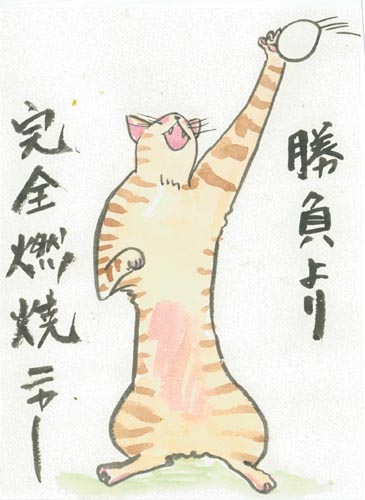 勝負より
完全燃焼ニャー